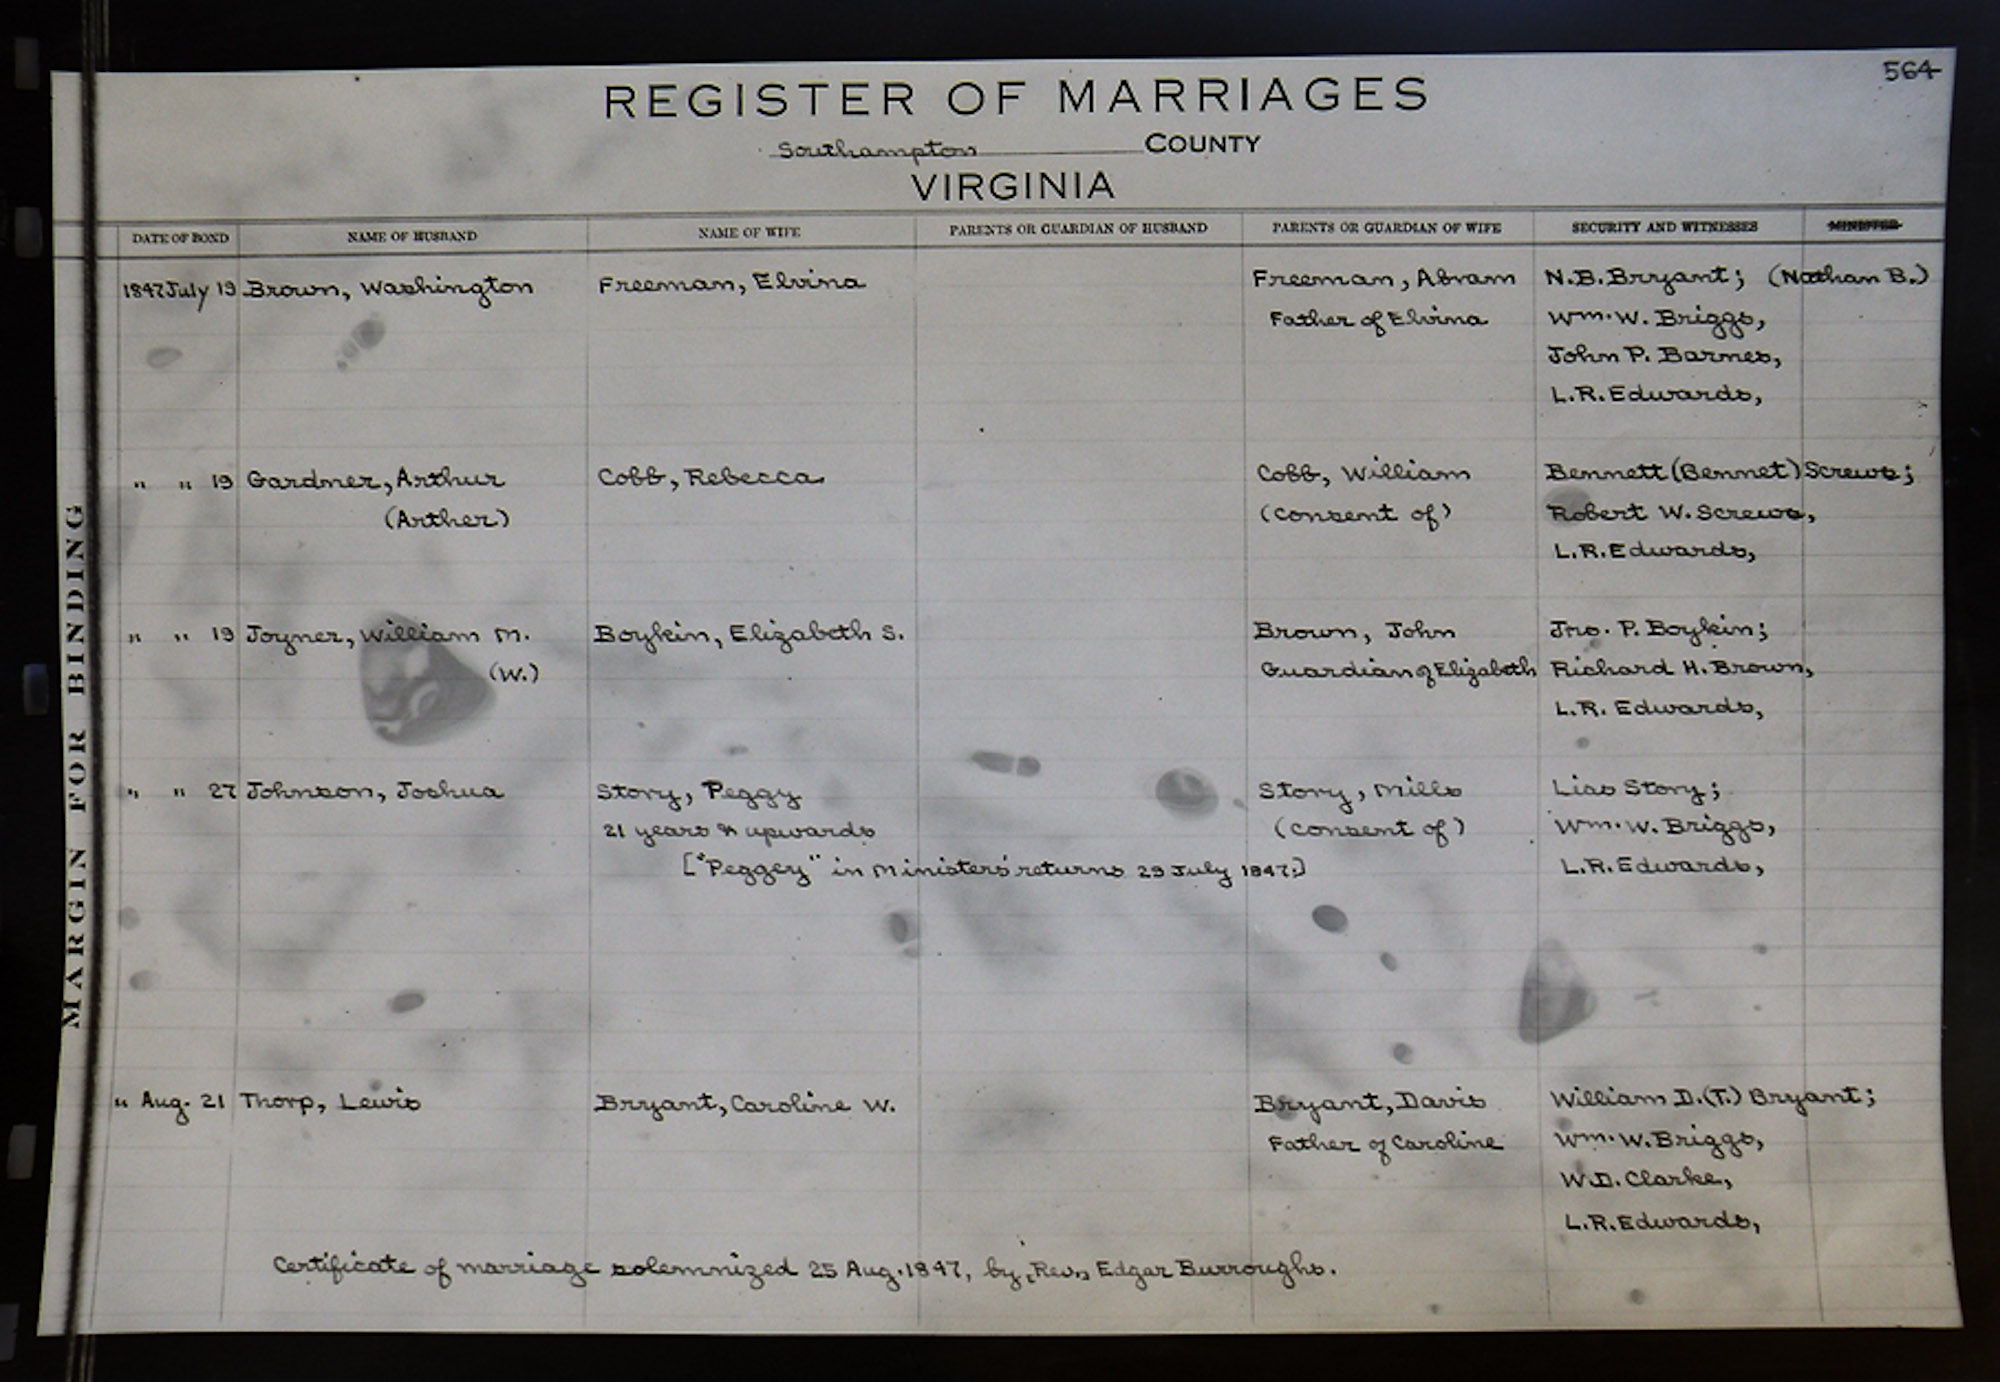 564
REGISTER OF MARRIAGES
Southampton COUNTY
VIRGINIA
DATE OF BOND NAME OF HUSBAND NAME OF WIFE PARENTS OR GUARDIAN OF HUSBAND PARENTS OR GUARDIAN OF WIFE SECURITY AND WITNESSES MINISTER
1847 July 19 Brown, Washington Freeman, Elvina Freeman, Abram N.B. Bryant; (Nathan B.)
Father of Elvina Wm. W. Briggs,
John P. Barnes,
L.R. Edwards,
" " 19 Gardner, Arthur Cobb, Rebecca Cobb, William Bennett (Bennet) Screws;
(Arther) (consent of) Robert W. Screws,
L.R. Edwards,
" " 19 Joyner, William M. Boykin, Elizabeth S. Brown, John Jno. P. Boykin;
(W.) Guardian of Elizabeth Richard H. Brown,
L.R. Edwards,
" " 27 Johnson, Joshua Story, Peggy Story, Mills Lias Story;
21 years & upwards (consent of) Wm. W. Briggs,
["Peggey" in Ministers' returns 29 July 1847.] L.R. Edwards,
" Aug. 21 Thorp, Lewis Bryant, Caroline W. Bryant, Davis William D. (T.) Bryant;
Father of Caroline Wm. W. Briggs,
W.D. Clarke,
L.R. Edwards,
Certificate of marriage solemnized 25 Aug. 1847, by, Rev., Edgar Burroughs.
MARGIN FOR BINDING